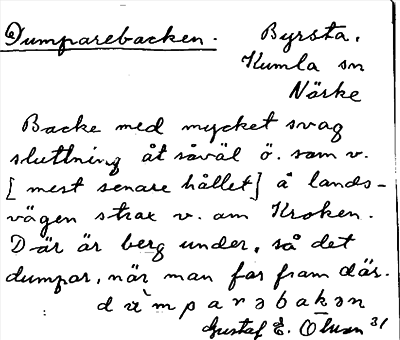 Dumparebacken.
Byrsta.
Kumla sn
Närke
Backe med mycket svag
sluttning åt såväl ö. som v.
[mest senare hållet] å lands-
vägen strax v. om Kroken.
Där är berg under, så det
dumpar, när man far fram där.
Gustaf E.